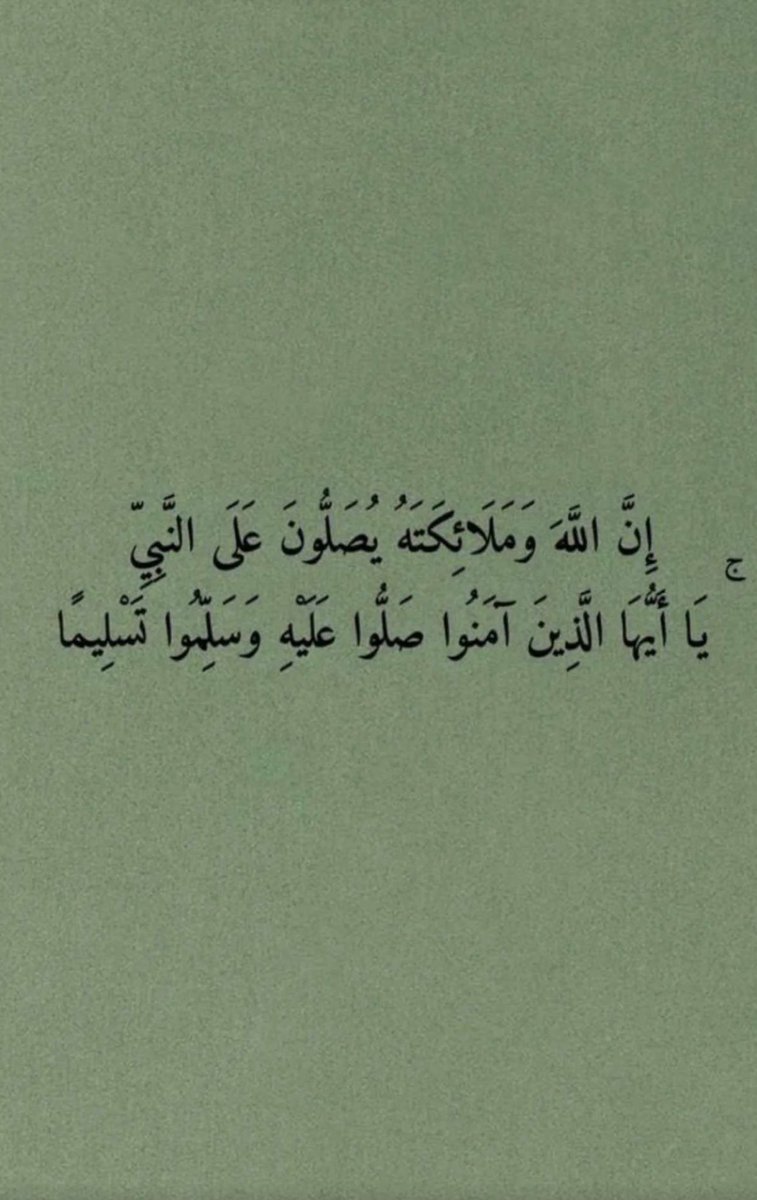 إِنَّ اللَّهَ وَمَلَائِكَتَهُ يُصَلُّونَ عَلَى النَّبِيِّ ۚ
يَا أَيُّهَا الَّذِينَ آمَنُوا صَلُّوا عَلَيْهِ وَسَلِّمُوا تَسْلِيمًا